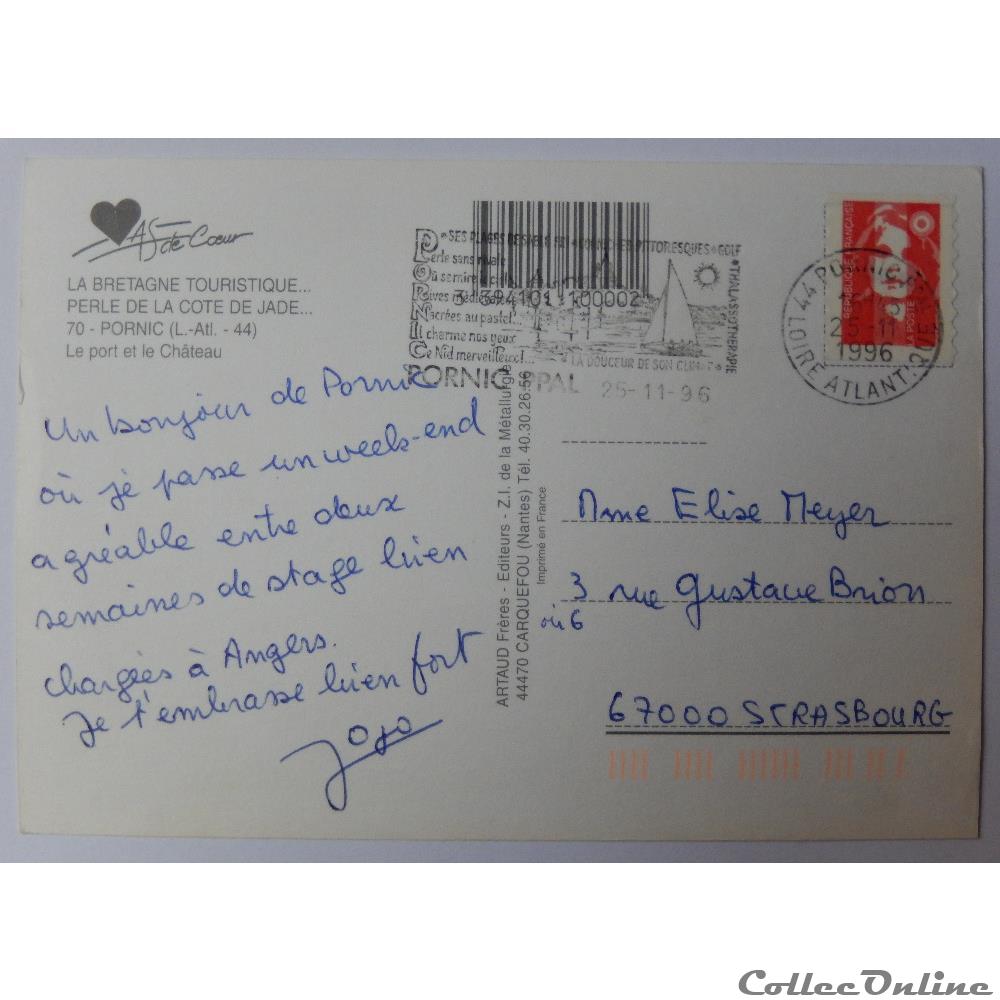 As de Cœur
LA BRETAGNE TOURISTIQUE...
PERLE DE LA COTE DE JADE...
70 - PORNIC (L.-Atl. - 44)
Le port et le Château
Un bonjour de Pornic
où je passe un week-end
agréable entre deux
semaines de stage bien
chargées à Angers.
Je t'embrasse bien fort
Jojo
ARTAUD Frères - Editeurs - Z.I. de la Métallurgie
44470 CARQUEFOU (Nantes) Tél. 40.30.26.56
Imprimé en France
3 394101 100002
PITTORESQUES * GOLF
* THALASSOTHERAPIE
* LA DOUCEUR DE SON CLIMAT *
Perle sans rivale
Nacrées au pastel
I charme nos yeux
Ce Nid merveilleux!...
PORNIC PPAL
25-11-96
REPUBLIQUE FRANÇAISE
LA POSTE
44 PORNIC
25-11
1996
LOIRE ATLANTIQUE
Mme Elise Meyer
3 rue Gustave Brion
où 6
67000 STRASBOURG
CollecOnline